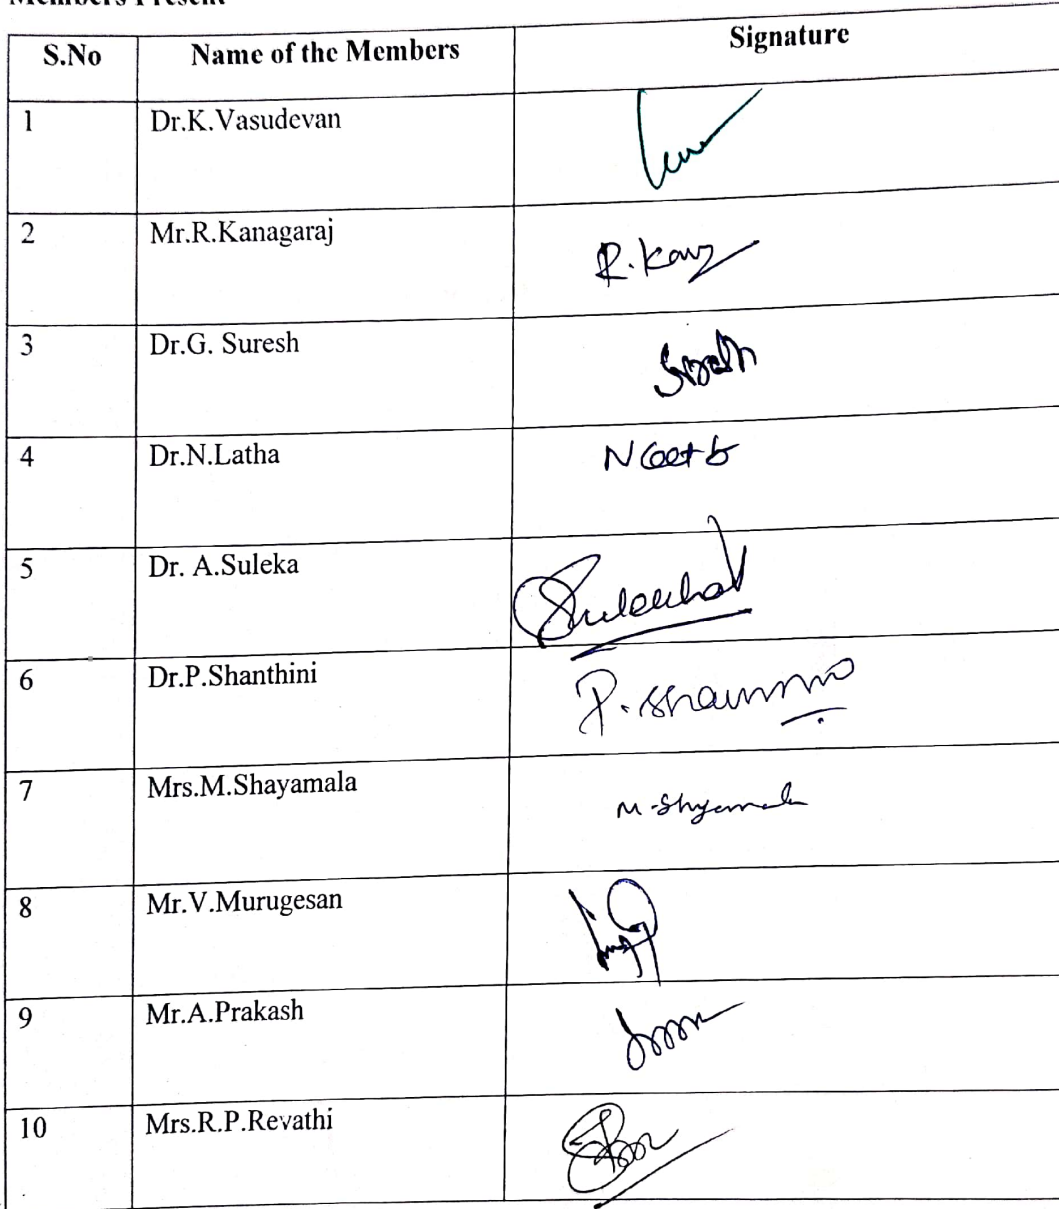 Members Present
S.No Name of the Members Signature
1 Dr.K.Vasudevan
2 Mr.R.Kanagaraj R.Kang
3 Dr.G. Suresh
4 Dr.N.Latha
5 Dr. A.Suleka
6 Dr.P.Shanthini
7 Mrs.M.Shayamala M.Shyamala
8 Mr.V.Murugesan
9 Mr.A.Prakash
10 Mrs.R.P.Revathi